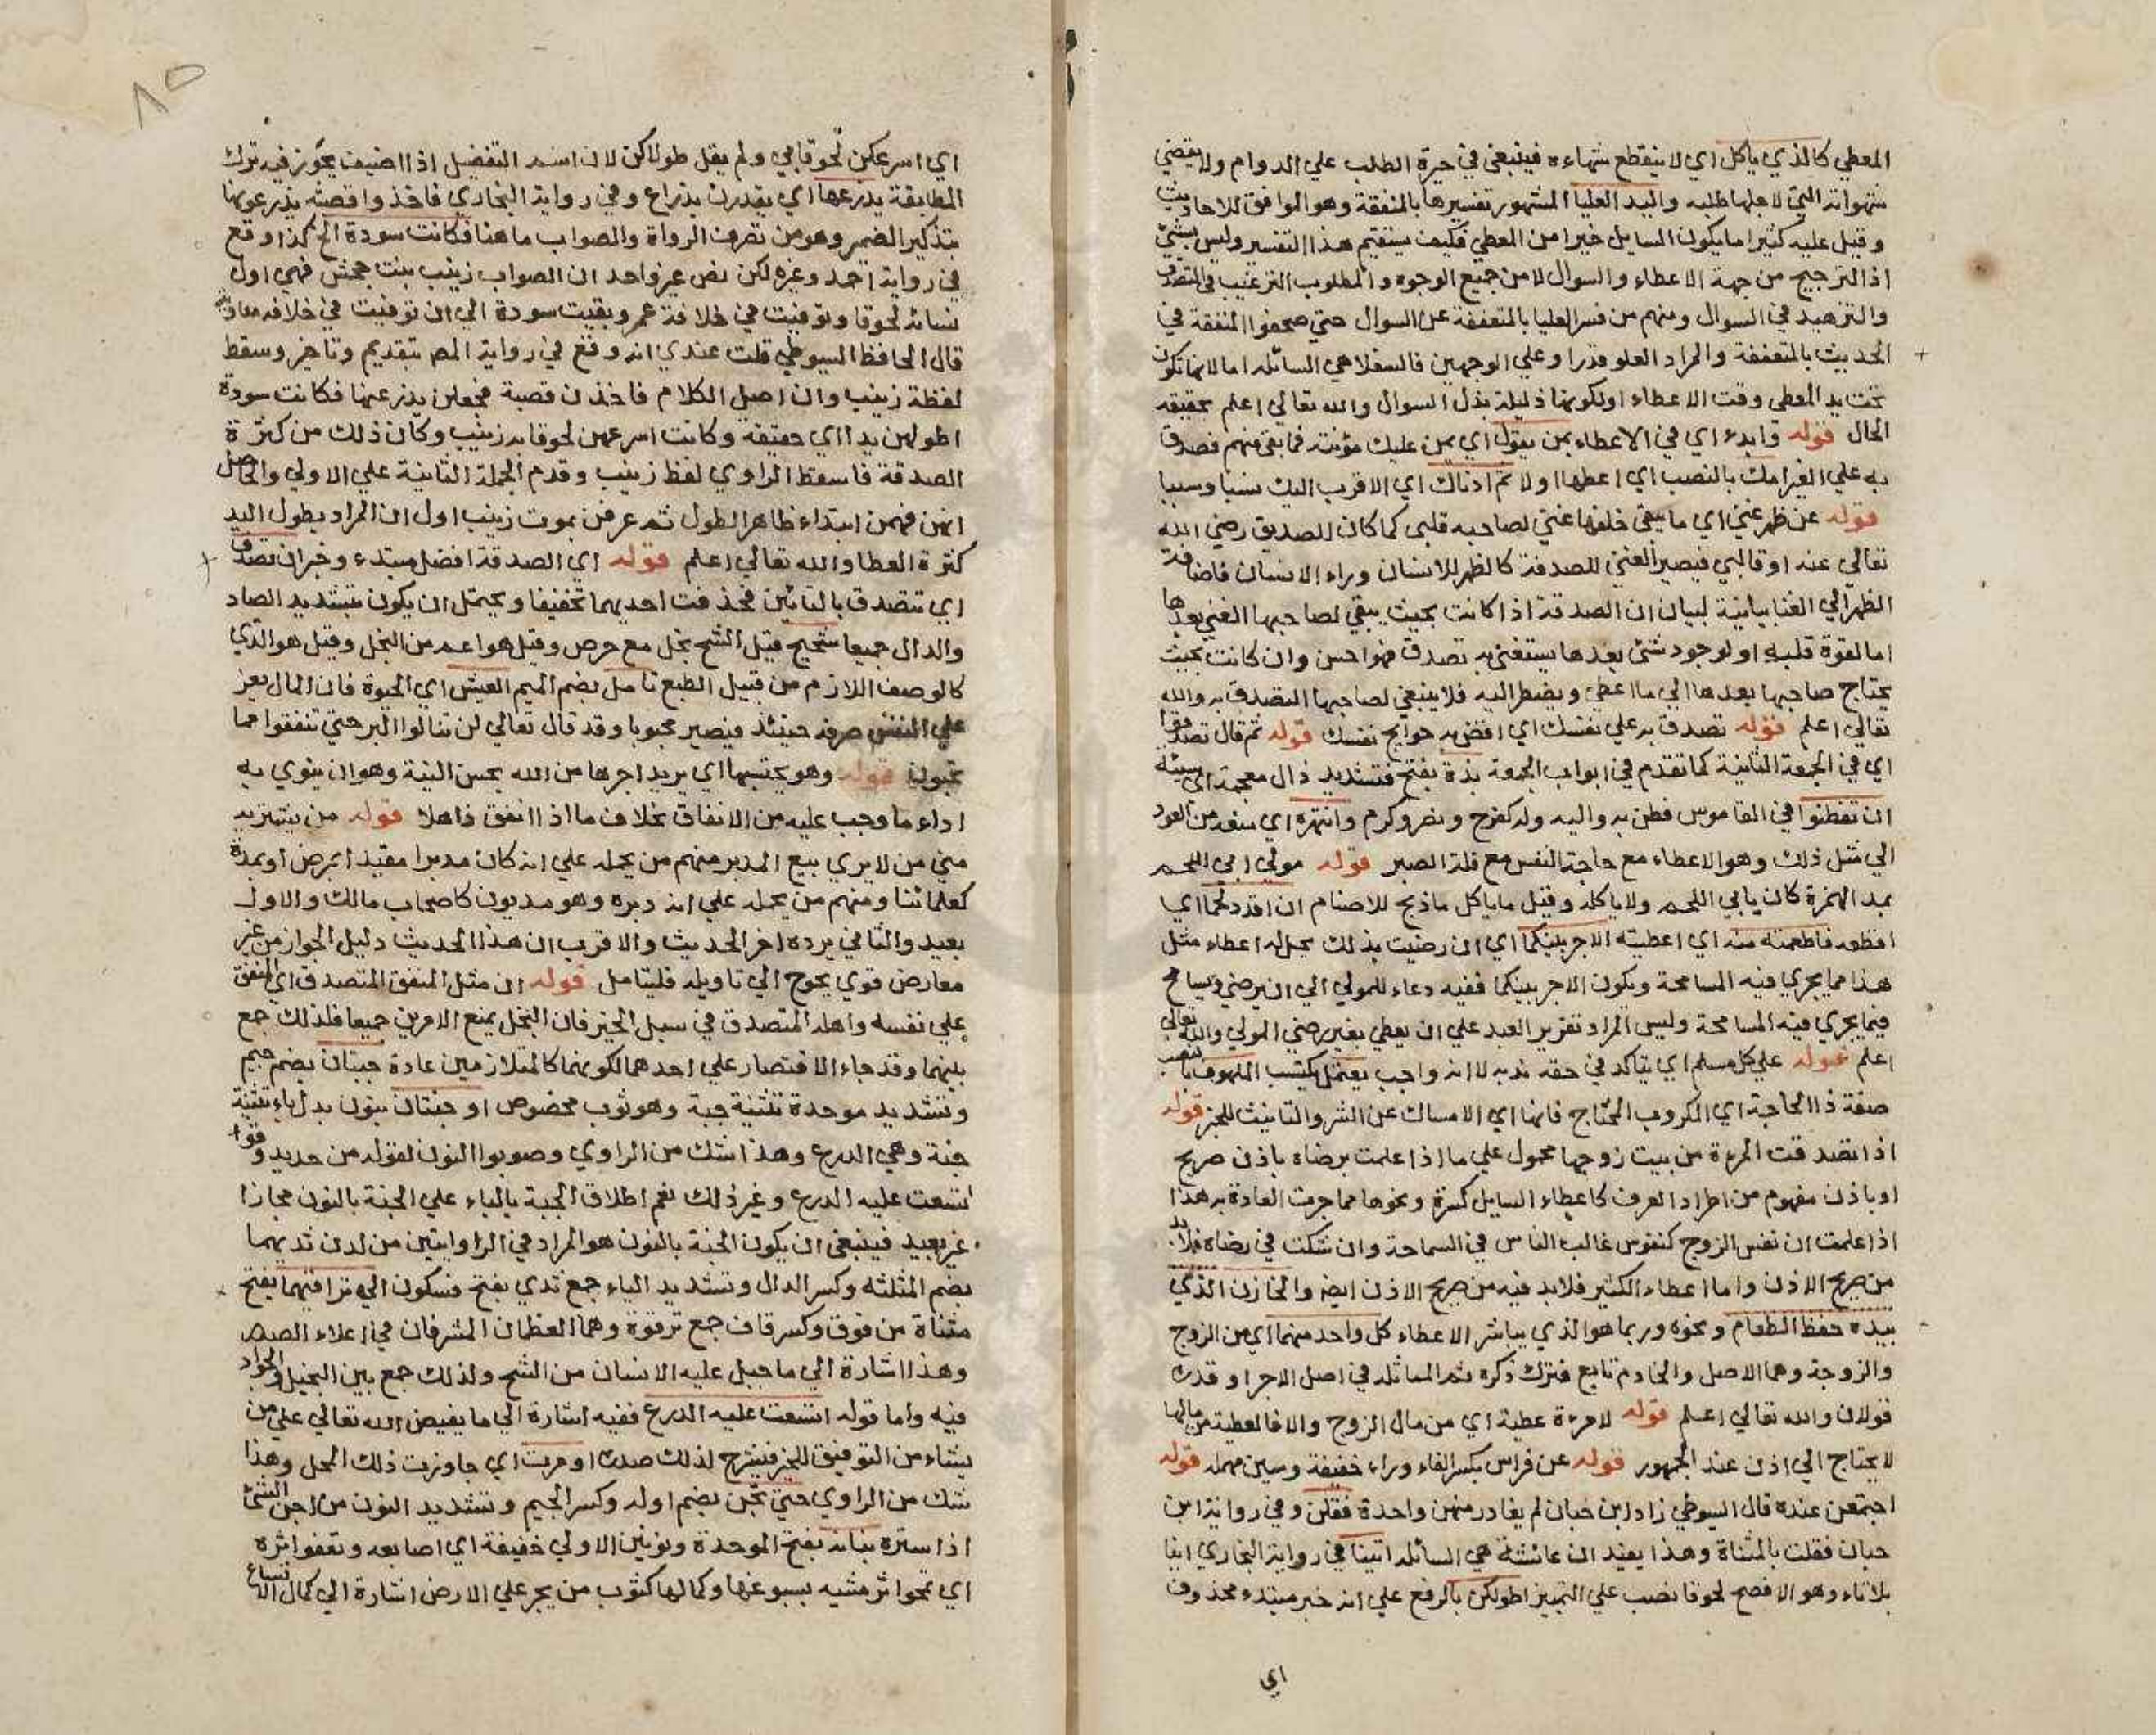 المعطي كالذي ياكل اي لا ينقطع شتهاءه فينبغي في حيرة الطلب علي الدوام ولا يقضي
شهواته التي لاجلها طلبه واليد العليا المشهور تفسيرها بالمنفقة وهو الموافق للاحاديث
وقيل عليه كثيرا ما يكون السايل خيرا من المعطي فكيف يستقيم هذا التفسير وليس بشيئ
اذ الترجيح من جهة الاعطاء والسوال لا من جميع الوجوه والمطلوب الترغيب في التصدق
والتزهيد في السوال ومنهم من فسر العليا بالمتعففة عن السوال حتي صحفوا المنفقة في
الحديث بالمتعففة والمراد العلو قدرا وعلي الوجهين فالسفلا هي السائله اما لانها تكون
تحت يد المعطي وقت الاعطاء او لكونها ذليلة بذل السوال والله تعالي اعلم بحقيقه
الحال قوله وابدء اي في الاعطاء بمن يقول اي بمن عليك مؤنته فما بقي منهم فصدق
به علي الغير امك بالنصب اي اعطها اولا ثم ادناك اي الاقرب اليك نسبا وسببا
قوله عن ظهر غني اي ما يبقي خلفها غني لصاحبه قلبي كما كان للصديق رضي الله
تعالي عنه او قالبي فيصير الغني للصدقة كالظهر للانسان وراء الانسان فاضافة
الظهر الي الغنا بيانية لبيان ان الصدقة اذا كانت بحيث يبقي لصاحبها الغني بعدها
اما لقوة قلبه او لوجود شئ بعدها يستغني به تصدق فهو احسن وان كانت بحيث
يحتاج صاحبها بعدها الي ما اعطي ويضطر اليه فلا ينبغي لصاحبها التصدق به والله
تعالي اعلم قوله تصدق به علي نفسك اي اقض به حوايج نفسك قوله ثم قال تصدقوا
اي في الجمعة الثانية كما تقدم في ابواب الجمعة بذة بفتح فتشديد ذال معجمة اي سيئه
ان تفطنوا في القاموس فطن به واليه وله كفرح ونصر وكرم وانتهره اي منعه من العود
الي مثل ذلك وهو الاعطاء مع حاجة النفس مع قلة الصبر قوله مولي ابي اللحم
بمد الهمزة كان يابي اللحم ولا ياكله وقيل ما ياكل ما ذبح للاصنام ان اقدد لحما اي
اقطعه فاطعمته منه اي اعطيته الاجر بينكما اي ان رضيت بذلك يحل له اعطاء مثل
هذا مما يجري فيه المسامحة ويكون الاجر بينكما ففيه دعاء للمولي الي ان يرضي ويسامح
فيما يجري فيه المسامحة وليس المراد تقرير العبد علي ان يعطي بغير رضي المولي والله تعالي
اعلم قوله علي كل مسلم اي يتاكد في حقه ندبه لا انه واجب يعتمل يكتسب الملهوف بالنصب
صفة ذا الحاجة اي المكروب المحتاج فانها اي الامساك عن الشر والتانيث للخبر قوله
اذا تصدقت المرءة من بيت زوجها محمول علي ما اذا علمت برضاه باذن صريح
او باذن مفهوم من اطراد العرف كاعطاء السايل كسرة ونحوها مما جرت العادة به هذا
اذا علمت ان نفس الزوج كنفوس غالب الناس في السماحة وان شكت في رضاه فلا بد
من صريح الاذن واما اعطاء الكثير فلابد فيه من صريح الاذن ايض والخازن الذي
بيده حفظ الطعام ونحوه وربما هو الذي يباشر الاعطاء كل واحد منهما اي من الزوج
والزوجة وهما الاصل والخادم تابع فترك ذكره ثم المماثله في اصل الاجر او قدره
قولان والله تعالي اعلم قوله لامرءة عطية اي من مال الزوج والا فالعطية من مالها
لا يحتاج الي اذن عند الجمهور قوله عن فراس بكسر الفاء وراء خفيفة وسين مهمله قوله
اجتمعن عنده قال السيوطي زاد ابن حبان لم يغادر منهن واحدة فقلن وفي رواية ابن
حبان فقلت بالمثناة وهذا يفيد ان عائشة هي السائله ايتنا في رواية البخاري اينا
بلا تاء وهو الافصح لحوقا نصب علي التميز اطولكن بالرفع علي انه خبر مبتدء محذوف
اي
٨٥
اي اسرعكن لحوقا بي ولم يقل طولاكن لان اسم التفضيل اذا اضيف يجوز فيه ترك
المطابقة يذرعها اي يقدرن بذراع وفي رواية البخاري فاخذوا قصبة يذرعونها
بتذكير الضمير وهو من تصرف الرواة والصواب ما هنا فكانت سودة الخ كذا وقع
في رواية احمد وغيره لكن نص غير واحد ان الصواب زينب بنت جحش فهي اول
نسائه لحوقا وتوفيت في خلافة عمر وبقيت سودة الي ان توفيت في خلافه معاوية
قال الحافظ السيوطي قلت عندي انه وقع في رواية المص بتقديم وتاخير وسقط
لفظة زينب وان اصل الكلام فاخذن قصبة فجعلن يذرعنها فكانت سودة
اطولهن يدا اي حقيقه وكانت اسرعهن لحوقا به زينب وكان ذلك من كثرة
الصدقة فاسقط الراوي لفظ زينب وقدم الجملة الثانية علي الاولي والحاصل
انهن فهمن ابتداء ظاهر الطول ثم عرفن بموت زينب اول ان المراد بطول اليد
كثرة العطا والله تعالي اعلم قوله اي الصدقة افضل مبتدء وخبر ان تصدق
اي تتصدق بالتائين فحذفت احديهما تخفيفا ويحتمل ان يكون بتشديد الصاد
والدال جميعا شحيح قيل الشح بخل مع حرص وقيل هو اعم من البخل وقيل هو الذي
كالوصف اللازم من قبيل الطبع تامل بضم الميم العيش اي الحيوة فان المال يعز
علي النفس صرفه حينئذ فيصير محبوبا وقد قال تعالي لن تنالوا البر حتي تنفقوا مما
تحبون قوله وهو يحتسبها اي يريد اجرها من الله بحسن النية وهو ان ينوي به
اداء ما وجب عليه من الانفاق بخلاف ما اذا انفق ذاهلا قوله من يشتريه
مني من لا يري بيع المدبر منهم من يحمله علي انه كان مدبرا مقيدا بمرض او بمدة
كعلمائنا ومنهم من يحمله علي انه دبره وهو مديون كاصحاب مالك والاول
بعيد والثاني يرده اخر الحديث والاقرب ان هذا الحديث دليل الجواز من غير
معارض قوي يحوج الي تاويله فليتامل قوله ان مثل المنفق المتصدق اي المنفق
علي نفسه واهله المتصدق في سبل الخير فان البخل يمنع الامرين جميعا فلذلك جمع
بينهما وقد جاء الاقتصار علي احدهما لكونهما كالمتلازمين عادة جبتان بضم جيم
وتشديد موحدة تثنية جبة وهو ثوب مخصوص او جنتان بنون بدل باء تثنية
جنة وهي الدرع وهذا شك من الراوي وصوبوا النون لقوله من حديد وقوله
اتسعت عليه الدرع وغير ذلك نعم اطلاق الجبة بالباء علي الجنة بالنون مجازا
غير بعيد فينبغي ان يكون الجنة بالنون هو المراد في الراوايتين من لدن ثديهما
بضم المثلثه وكسر الدال وتشديد الياء جمع ثدي بفتح فسكون الي تراقيهما بفتح
مثناة من فوق وكسر قاف جمع ترقوة وهما العظمان المشرفان في اعلاء الصدر
وهذا اشارة الي ما جبل عليه الانسان من الشح ولذلك جمع بين البخيل والجواد
فيه واما قوله اتسعت عليه الدرع ففيه اشارة الي ما يفيض الله تعالي علي من
يشاء من التوفيق للخير فيشرح لذلك صدره او مرت اي جاوزت ذلك المحل وهذا
شك من الراوي حتي تجن بضم اوله وكسر الجيم وتشديد النون من اجن الشئ
اذا ستره بنانه بفتح الموحدة ونونين الاولي خفيفة اي اصابعه وتعفو اثره
اي تمحو اثر مشيه بسبوغها وكمالها كثوب من يجر علي الارض اشارة الي كمال الاتساع